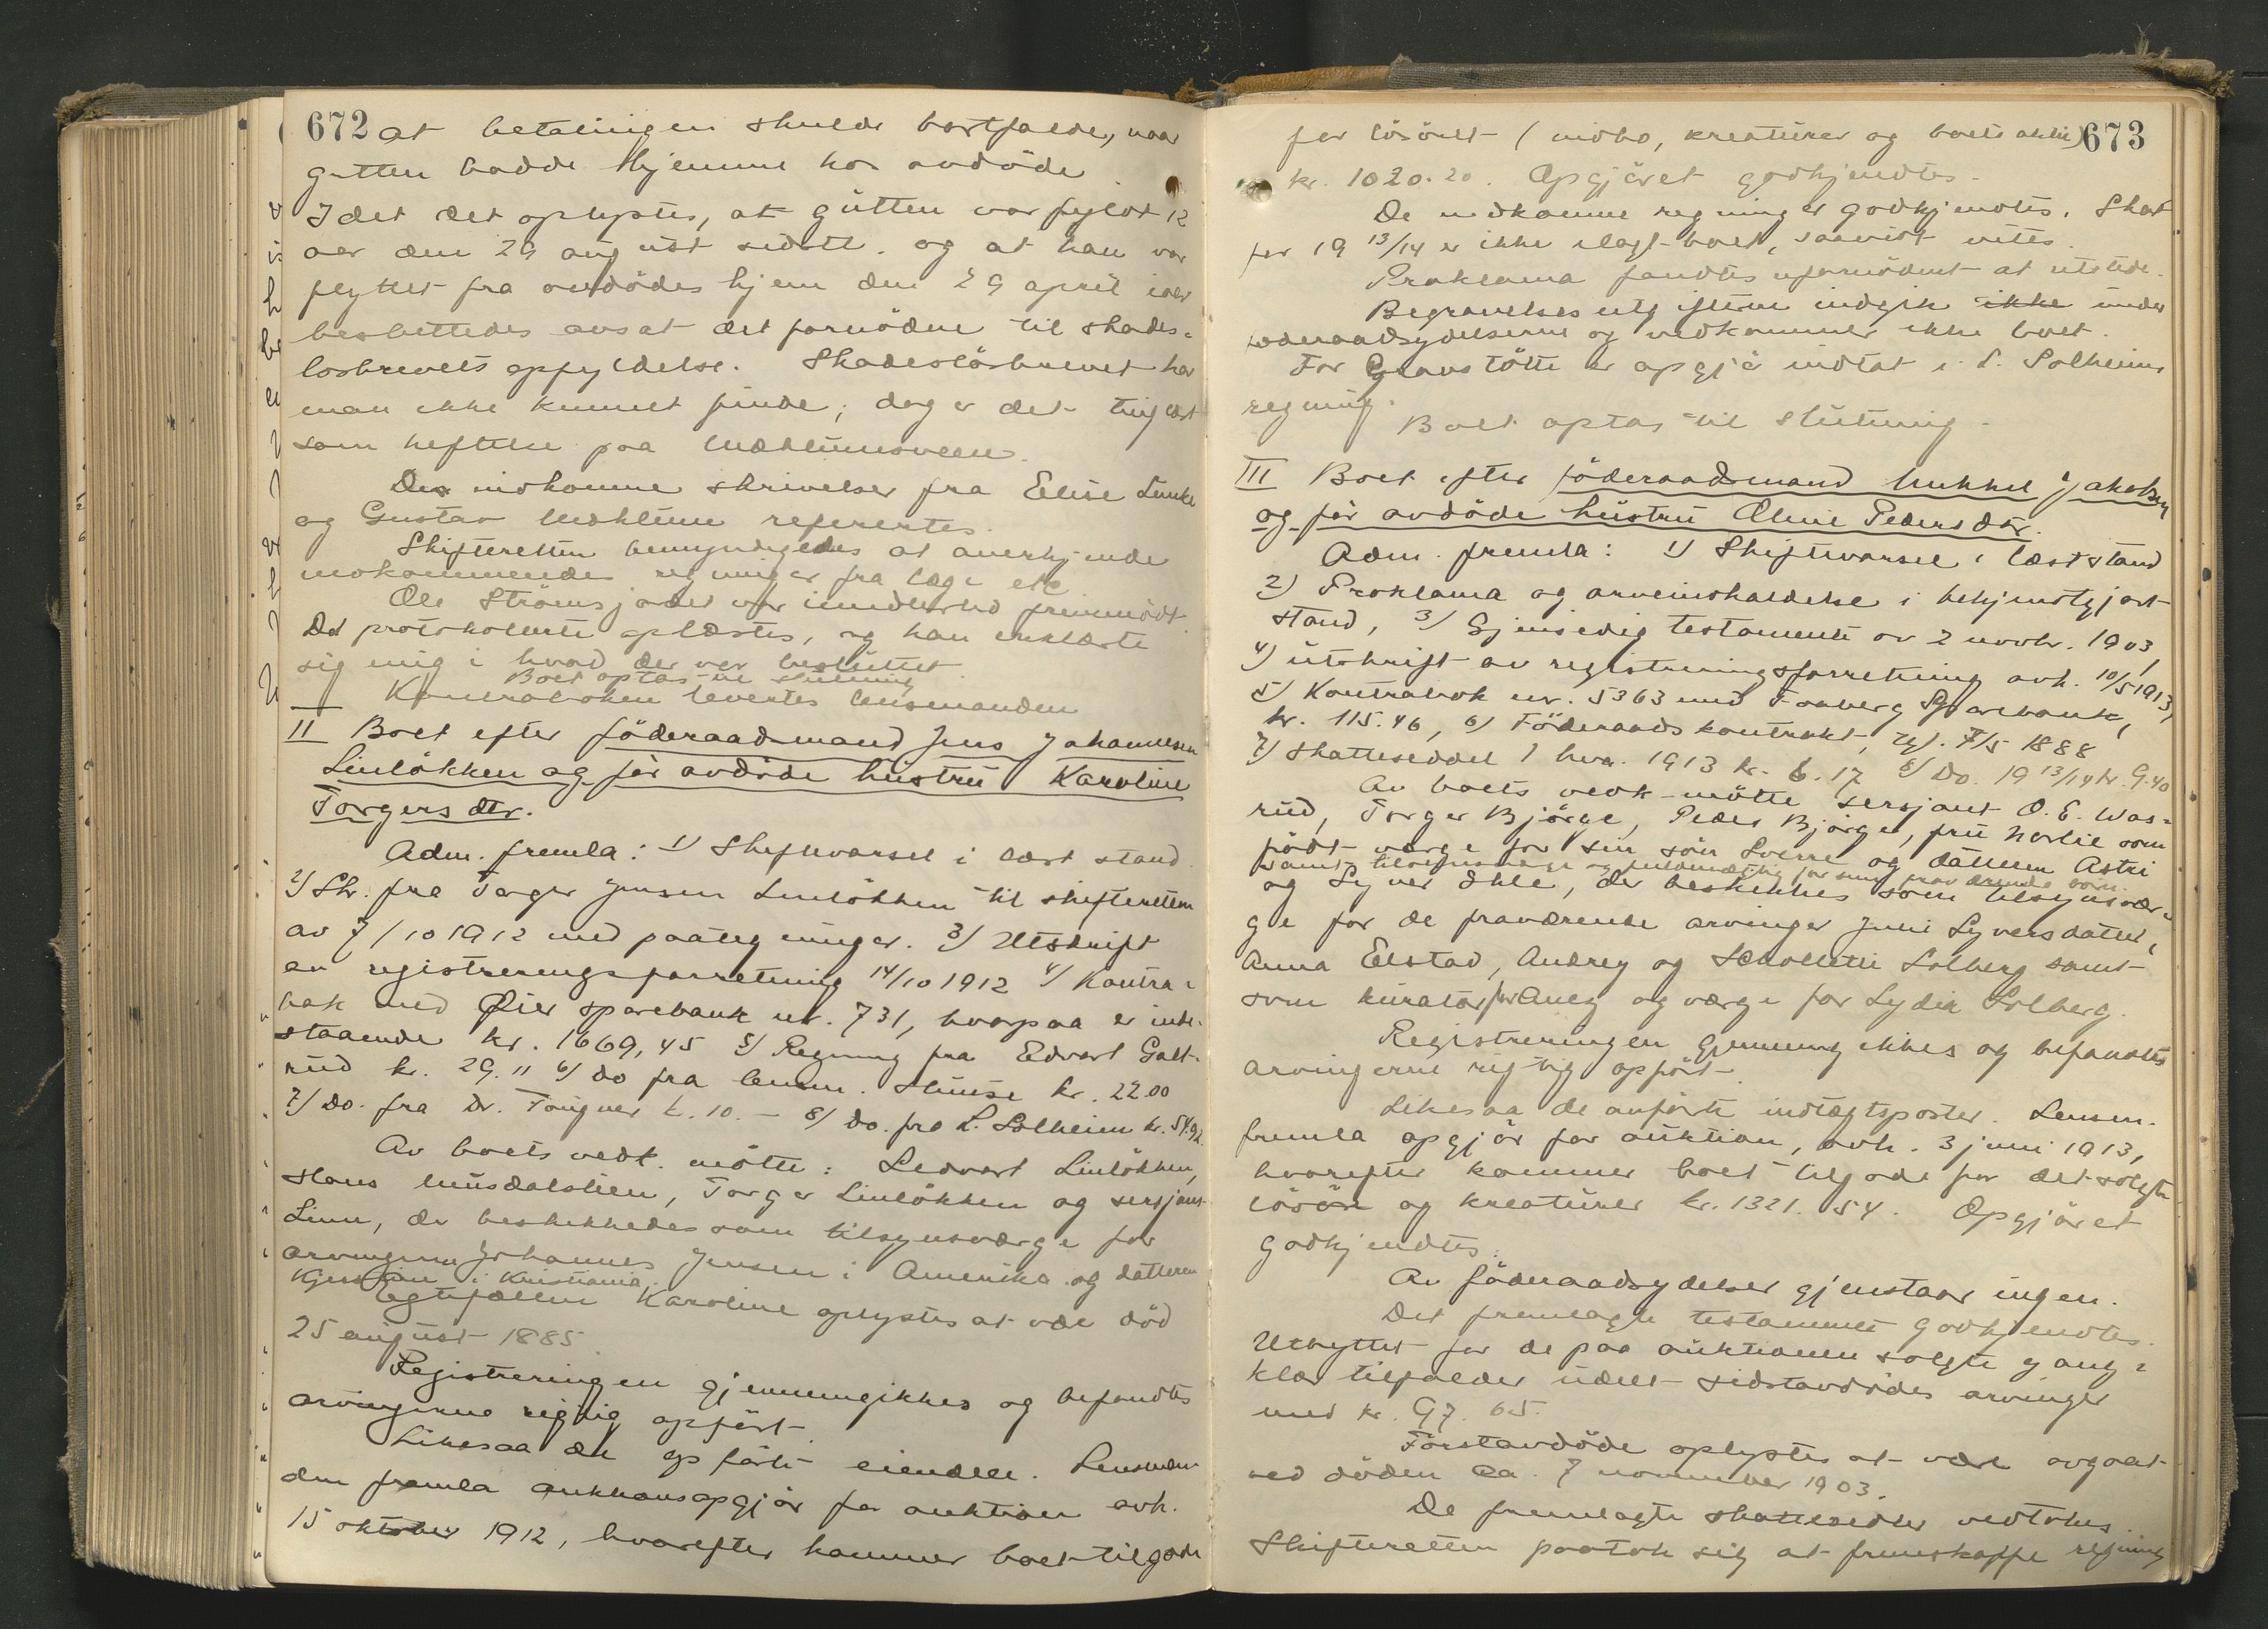 672
at betalingen skulde bortfalde, naar
gutten bodde hjemme hos avdöde
Idet det oplystes, at gutten var fyldt 12
aar den 29 august sidstl. og at han var
flyttet fra avdödes hjem den 29 april iaar
besluttedes avsat det fornödne til skades=
løsbrevets opfyldelse. Skadeslösbrevet har
man ikke kunnet finde; dog er det tinglæst
som heftelse paa
De indkomne skrivelser fra Elise Lunke
og Gustav refereertes.
Skifteretten bemyndigedes at anerkjende
indkommende regninger fra læge etc
Ole Strömsjordet var imidlertid fremmödt.
Det protokollerte oplæstes, og han erklærte
sig enig i hvad der var besluttet.
Boet optas til slutning
Kontraboken levertes lensmanden
II Boet efter föderaadsmand Jens Johannesen
Linlökken og før avdöde hustru Karoline
Torgersdtr.
Adm. fremla: 1) Skiftevarsel i læst stand.
2) Skr. fra Torger Jensen Linlökken til skifteretten
av 7/10 1912 med paategninger. 3/ Utskrift
av registreringsforretning 14/10 1912 4/ Kontra=
bok med Øier sparebank nr. 731, hvorpaa er inde-
staaende kr. 1669,45 5/ Regning fra Edvart Galt-
rud kr. 29." 6/ do fra lensm. kr. 22.00
7/ Do. fra Dr. Tongner k. 10.- 8/ Do. fra L. Solheim kr. 54.92.
Av boets vedk. mötte: Ledvart Linlökken,
Hans Musdalslien, Torger Linlökken og sersjant
Linn, der beskikkedes som tilsynsværge for
arvingerne Johannes Jensen i Amerika og datteren
i Kristiania.
Egtefællen Karoline oplystes at være död
25 august 1885.
Registreringen gjennemgikkes og befandtes
arvingerne rigtig opfört.
Likesaa de opförte eiendele. Lensman-
den fremla auktionsopgjör for auktion avh.
15 oktober 1912, hvorefter kommer boet tilgode
673
for lösöret (indbo, kreaturer og boets aktie)
kr. 1020.20. Opgjöret godkjendtes.
De indkomne regninger godkjendtes. Skat
for 19 13/14 er ikke ilagt boet, saavidt vites.
Proklama fandtes ufornödent at utstede.
Begravelsesutgifterne indgik ikke under
föderaadsydelserne og vedkommer ikke boet.
For Gravstötte er opgjör indtat i L. Solheims
regning.
Boet optas til slutning.
III Boet efter föderaadsmand Mikkel Jakobsen
og før avdöde hustru Oline Pedersdtr.
Adm. fremla: 1) Skiftevarsel i læst stand
2) Proklama og arveindkaldelse i bekjendtgjort
stand, 3/ Gjensidig testamente av 2 novbr. 1903,
4) utskrift av registreringsforretning avh. 10/5 1913,
5) Kontrabok nr. 5363 med Faaberg Sparebank,
kr. 115.46, 6) Föderaadskontrakt, tgl. 7/5 1888
7) Skatteseddel 1 hvx. 1913 kr. 6.17 8/ Do. 1913/14 kr. 9.40
Av boets vedk. mötte sersjant O. E. Was=
rud, Torger Björge, Peder Björge, fru Norlie som
födt værge for sin sön Sverre og datteren Astri
samt tilsynsværge og fuldmægtig for sine fraværende börn.
og Syver Ihle, der beskikkes som tilsynsvær=
ge for de fraværende arvinger Juni Syversdatter,
Anna Elstad, Andrey og Solberg samt
som kurator for og værge for Lydia Solberg.
Registreringen gjennemgikkes og befandtes
arvingerne rigtig opfört.
Likesaa de anförte indtægtsposter. Lensm.
fremla opgjör for auktion, avh. 3 juni 1913,
hvorefter kommer boet tilgode for det solgte
lösöre og kreaturer kr. 1321.54. Opgjöret
godkjendtes.
Av föderaadsydelser gjenstaar ingen.
Det fremlagte testament godkjendtes.
Utbyttet for de paa auktionen solgte gang=
klær tilfalder udelt sidstavdödes arvinger
med kr. 97.65.
Förstavdöde oplystes at være avgaat
ved döden ca. 7 november 1903.
De fremlagte skattesedler vedtokes.
Skifteretten paatok sig at fremskaffe regning